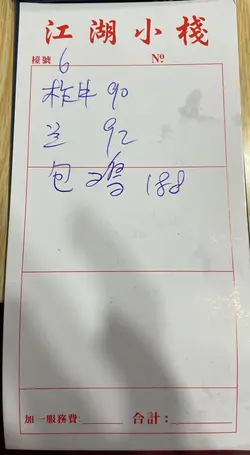 江湖小棧
檯號 6 Nº
柞牛 90
兰 92
包 鸡 188
加一服務費: 合計: